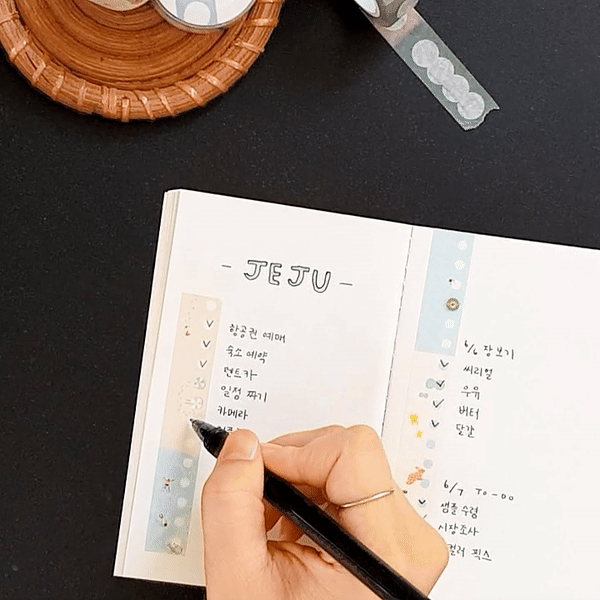 - JEJU -
항공권 예매
숙소 예약
렌트카
일정 짜기
카메라
6/6 장보기
씨리얼
우유
버터
달걀
6/7 TO-DO
샘플 수령
시장조사
컬러 픽스